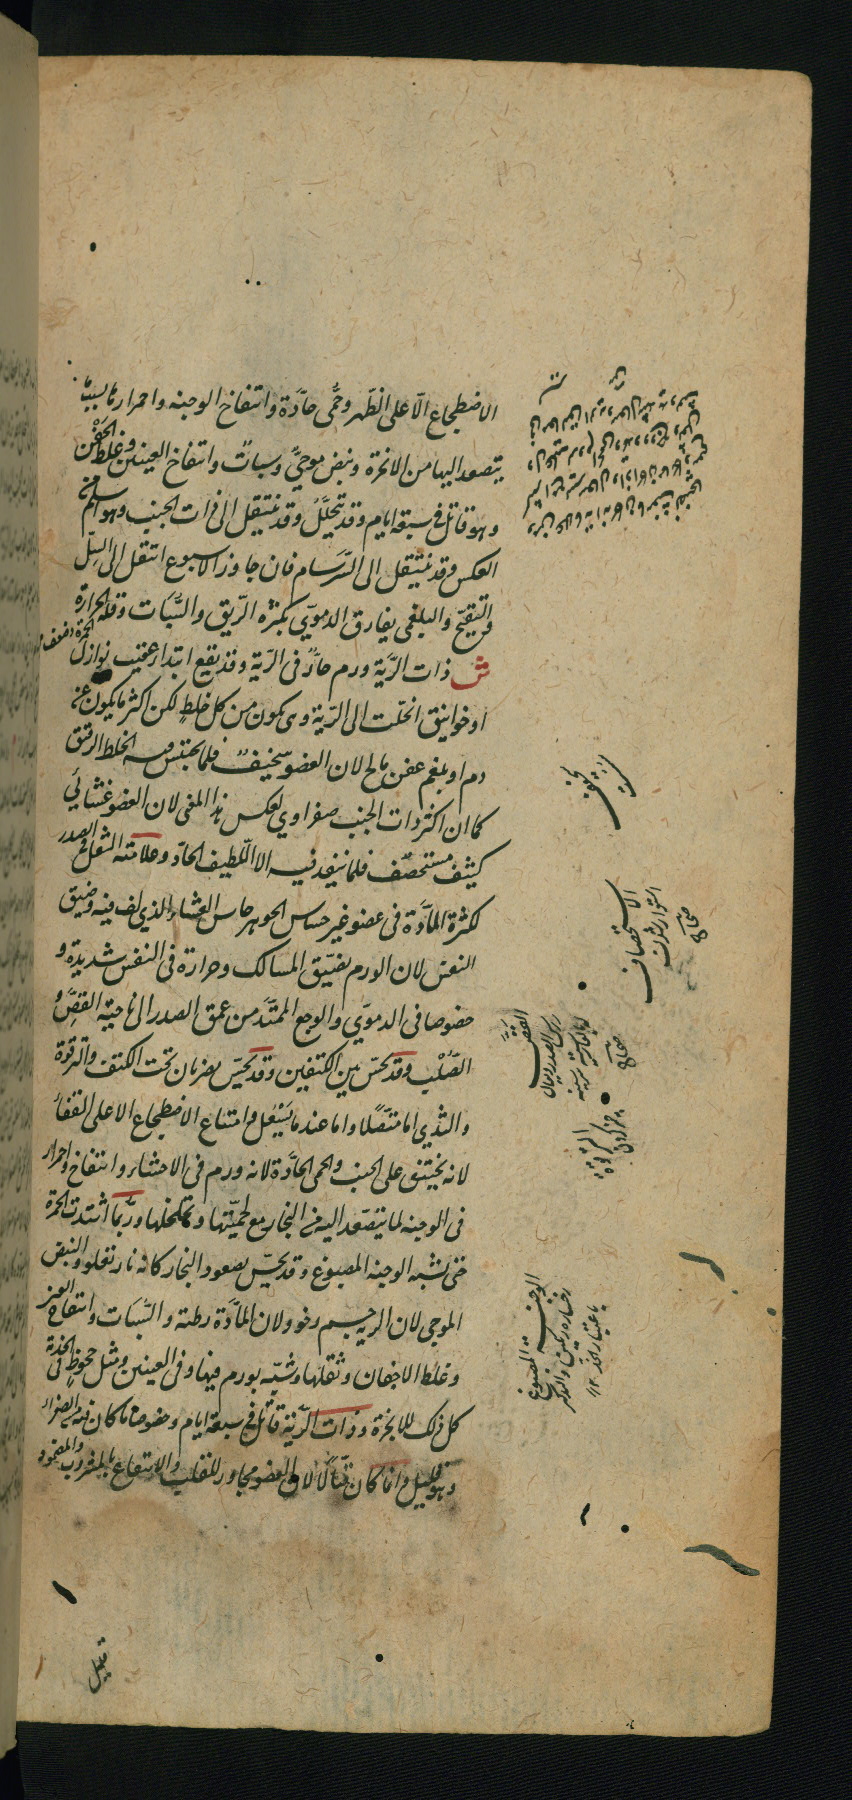 الاضطجاع الّا على الظهر وحمّى حادّة وانتفاخ الوجنه واحمرارها بسبب ما
يتصعد اليها من الابخرة ونبض موجىٌّ وسباتٌ وانتفاخ العينين وغلظ الجفن
وهو قاتل فى سبعة ايام وقد يتحلّلُ وقد ينتقل الى ذات الجنب وهو اسلم من
العكس وقد ينتقل الى السّرسام فان جاوز الاسبوع انتقل الى السِلّ
والتقيّح والبلغمى يفارق الدموىّ بكثرة الرّيق والسُّبات وقلة الحرارة
الحمرة وضعف
ش ذات الرّية ورم حارٌّ فى الرّية وقد يقع ابتداء عقيب نوازل
او خوانيق انحلّت الى الرّية وى يكون من كل خلطٍ لكن اكثر ما يكون عن
دم او بلغم عفن مالح لان العضو سخيفٌ قلما يحتبس فيه الخلط الرقيق
كما ان اكثر ذات الجنب صفراوي لعكس هذا المعنى لان العضو غشائىّ
كثيف مستحصف فلما ينفذ فيه الا اللّطيف الحادّ وعلامته الثقل فى الصدر
لكثرة المادّة فى عضو غير حساس الجوهر حاس الغشاء الذي لف فيه وضيق
النفس لان الورم يضيّق المسالك وحرارة فى النفس شديدة و
خصوصا فى الدموّي والوجع الممتدّ من عمق الصدر الى ناحية القصّ و
الصّلب وقد يحسّ بين الكتفين وقد يحسّ بضربان تحت الكتف والترقوة
والثدي اما متصلا واما عند ما يسعل وامتناع الاضطجاع الا على القفا
لانه يختنق على الجنب والحمى الحادّة لانه ورم فى الاحشاء وانتفاخ واحمرار
فى الوجنه لما يتصعّد اليه من البخار مع لحميّتها وتخلخلها وربّما اشتدت الحمرة
حتى تشبه الوجنه المصبوغ وقد يحسّ بصعود البخار كانه نار تعلو والنبض
الموجى لان الريه جسم رخو ولان المادّة رطبة والسُبَات وانتفاخ العين
وغلظ الاجفان وثقلها وشبّه بورم فيها وفى العينين ومثل جحوظ الحدقة فى
كل ذلك للابخرة وذات الرّية قاتل فى سبعة ايام وخصوصا ما كان من الصفراء
وهو قليل وانما كان قتّالا لان العضو مجاور للقلب والانتفاع بالمشروب والمضمود
قليل
سخيف
الاستحصاف
استوار شدن
صحاح
القصّ
صحاح
الترقوة
چنبر گردن
الوجنة المصبوغ
رخساره رنگين
باعتبار الخد ١٢